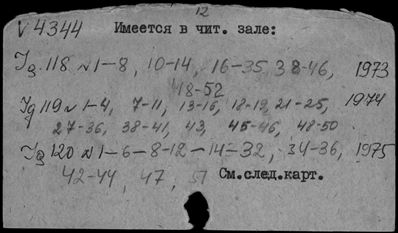 12
V 4344 Имеется в чит. зале:
Jg. 118 N 1-8, 10-14, 16-35, 38-46, 1973
48-52
Jg 119 N 1-4, 7-11, 13-16, 18-19, 21-25, 1974
27-36, 38-41, 43, 45-46, 48-50
Jg 120 N 1-6-8-12-14-32, 34-36, 1975
42-44, 47, 51 См.след.карт.